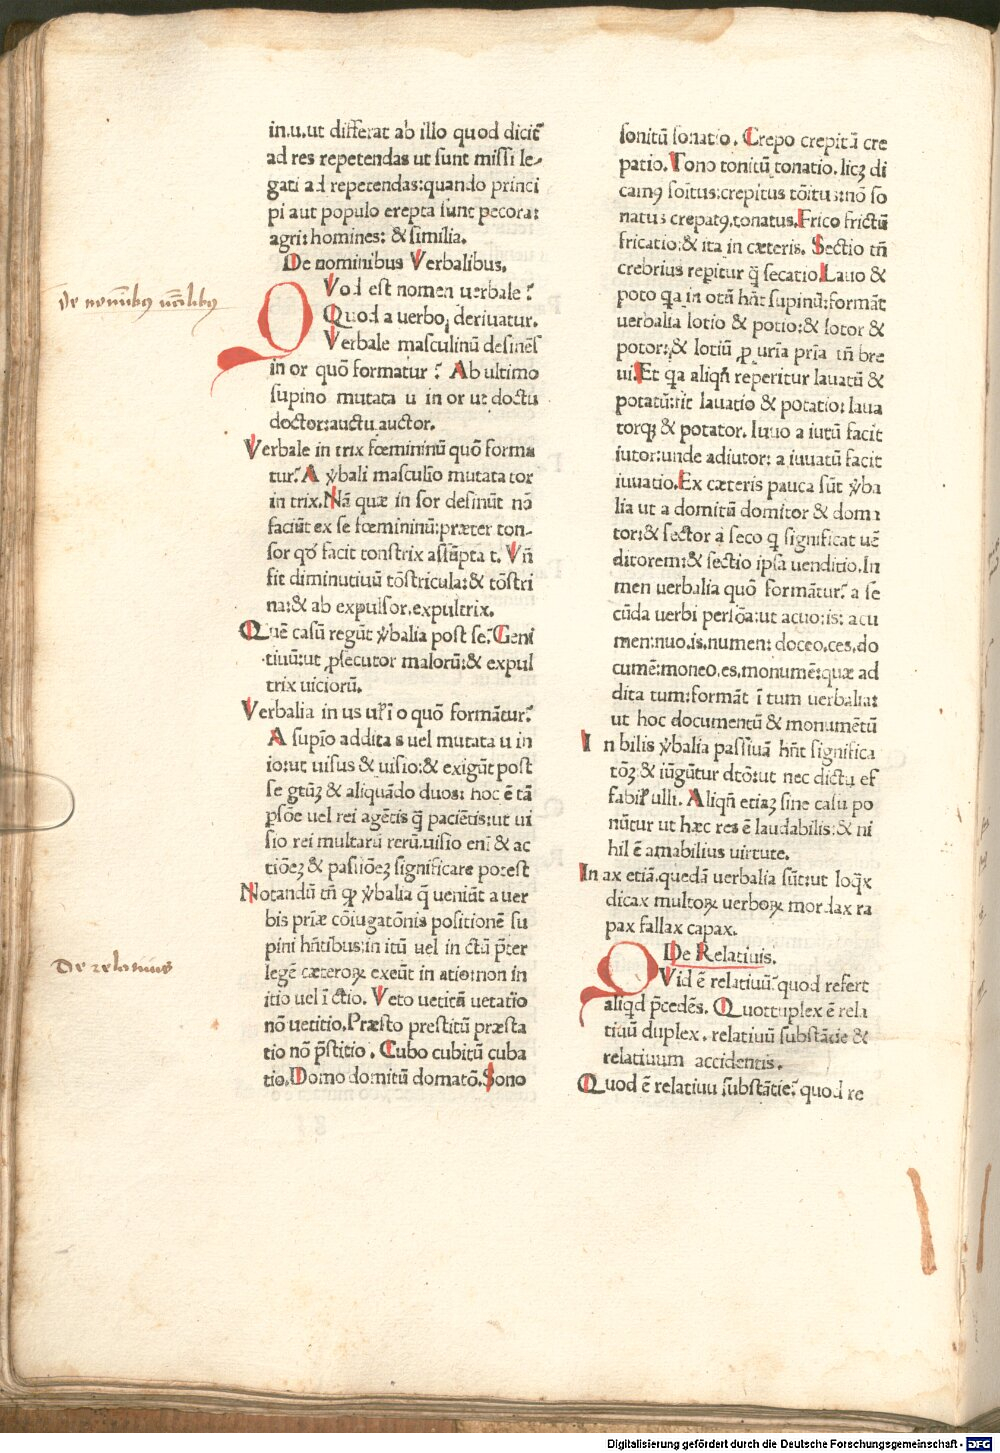 in.u.ut differat ab illo quod dicit̃
ad res repetendas ut sunt missi le-
gati ad repetendas:quando princi
pi aut populo erepta sunt pecora:
agri:homines: & similia.
De nominibus Verbalibus.
De nominibꝰ
QVod est nomen uerbale?
Quod a uerbo deriuatur.
Verbale masculinũ desinẽs
in or quõ formatur? Ab ultimo
supino mutata u in or ut doctu
doctor:auctu auctor.
Verbale in trix fœmininũ quõ forma
tur? A v̾bali masculĩo mutata tor
in trix.Nã quæ in sor desinũt nõ
faciũt ex se fœmininũ:præter ton-
sor qđ facit tonstrix assũpta t. Vñ
fit diminutiuũ tõstricula:& tõstri
na:& ab expulsor.expultrix.
Quẽ casũ regũt v̾balia post se? Geni
tiuũ:ut ꝓsecutor malorũ:& expul
trix uiciorũ.
Verbalia in us ul̾ ĩ o quõ formãtur?
A supĩo addita s uel mutata u in
io:ut uisus & uisio:& exigũt post
se gtũꝫ & aliquãdo duos: hoc ẽ tã
ꝑsõe uel rei agẽtis q̃ paciẽtis:ut ui
sio rei multarũ rerũ.uisio enĩ & ac
tiõeꝫ & passiõeꝫ significare potest
Notandũ tñ ꝙ v̾balia q̃ ueniãt a uer
bis prĩæ cõiugatõnis positionẽ su
pini hñtibus:in itũ uel in ctũ p̃ter
legẽ cæteroꝝ exeũt in atio:non in
itio uel ĩ ctio. Veto uetitũ uetatio
nõ uetitio.Præsto prestitũ præsta
tio nõ p̃stitio. Cubo cubitũ cuba
tio.Domo domitũ domatõ.Sono
De relatiuis
sonitũ sonatio. Crepo crepitũ cre
patio.Tono tonitũ tonatio.licꝫ di
camꝰ soĩtus:crepitus tõitus:nõ so
natus crepatꝰ.tonatus.Frico frictũ
fricatio:& ita in cæteris. Sectio tñ
crebrius repitur q̃ secatio.Lauo &
poto qa in otũ hñt supinũ:formãt
uerbalia lotio & potio:& lotor &
potor:& lotiũ ꝓ urĩa prĩa tñ bre
ui.Et qa aliqñ reperitur lauatũ &
potatũ:fit lauatio & potatio: laua
torqꝫ & potator. Iuuo a iutũ facit
iutor:unde adiutor: a iuuatũ facit
iuuatio.Ex cæteris pauca sũt v̾ba
lia ut a domitũ domitor & domi
tor:& sector a seco q significat uẽ
ditorem:& sectio ipsa uenditio.In
men uerbalia quõ formãtur? a se
cũda uerbi persõa:ut acuo:is: acu
men:nuo.is.numen: doceo.ces.do
cumẽ:moneo.es.monumẽ:quæ ad
dita tum:formãt ĩ tum uerbalia:
ut hoc documentũ & monumẽtũ
In bilis v̾balia passiuã hñt significa
tõꝫ & iũgũtur dtõ:ut nec dictu ef
fabil̾ ulli. Aliqñ etiaꝫ sine casu po
nũtur ut hæc res ẽ laudabilis:& ni
hil ẽ amabilius uirtute.
In ax etiã.quedã uerbalia sũt:ut loq̃x
dicax multoꝝ uerboꝝ mordax ra
pax fallax capax.
De Relatiuis.
QVid ẽ relatiuũ? quod refert
aliqd p̃cedẽs. Quottuplex ẽ rela
tiuũ duplex. relatiuũ substãtie &
relatiuum accidentis.
Quod ẽ relatiuu substãtie? quod re
Digitalisierung gefördert durch die Deutsche Forschungsgemeinschaft - DFG